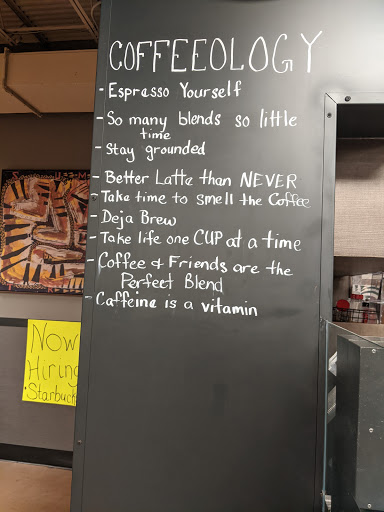 COFFEEOLOGY
- Espresso Yourself
- So many blends so little
time
- Stay grounded
- Better Latte than NEVER
- Take time to smell the Coffee
- Deja Brew
- Take life one CUP at a time
- Coffee & Friends are the
Perfect Blend
- Caffeine is a vitamin
Now
Hiring